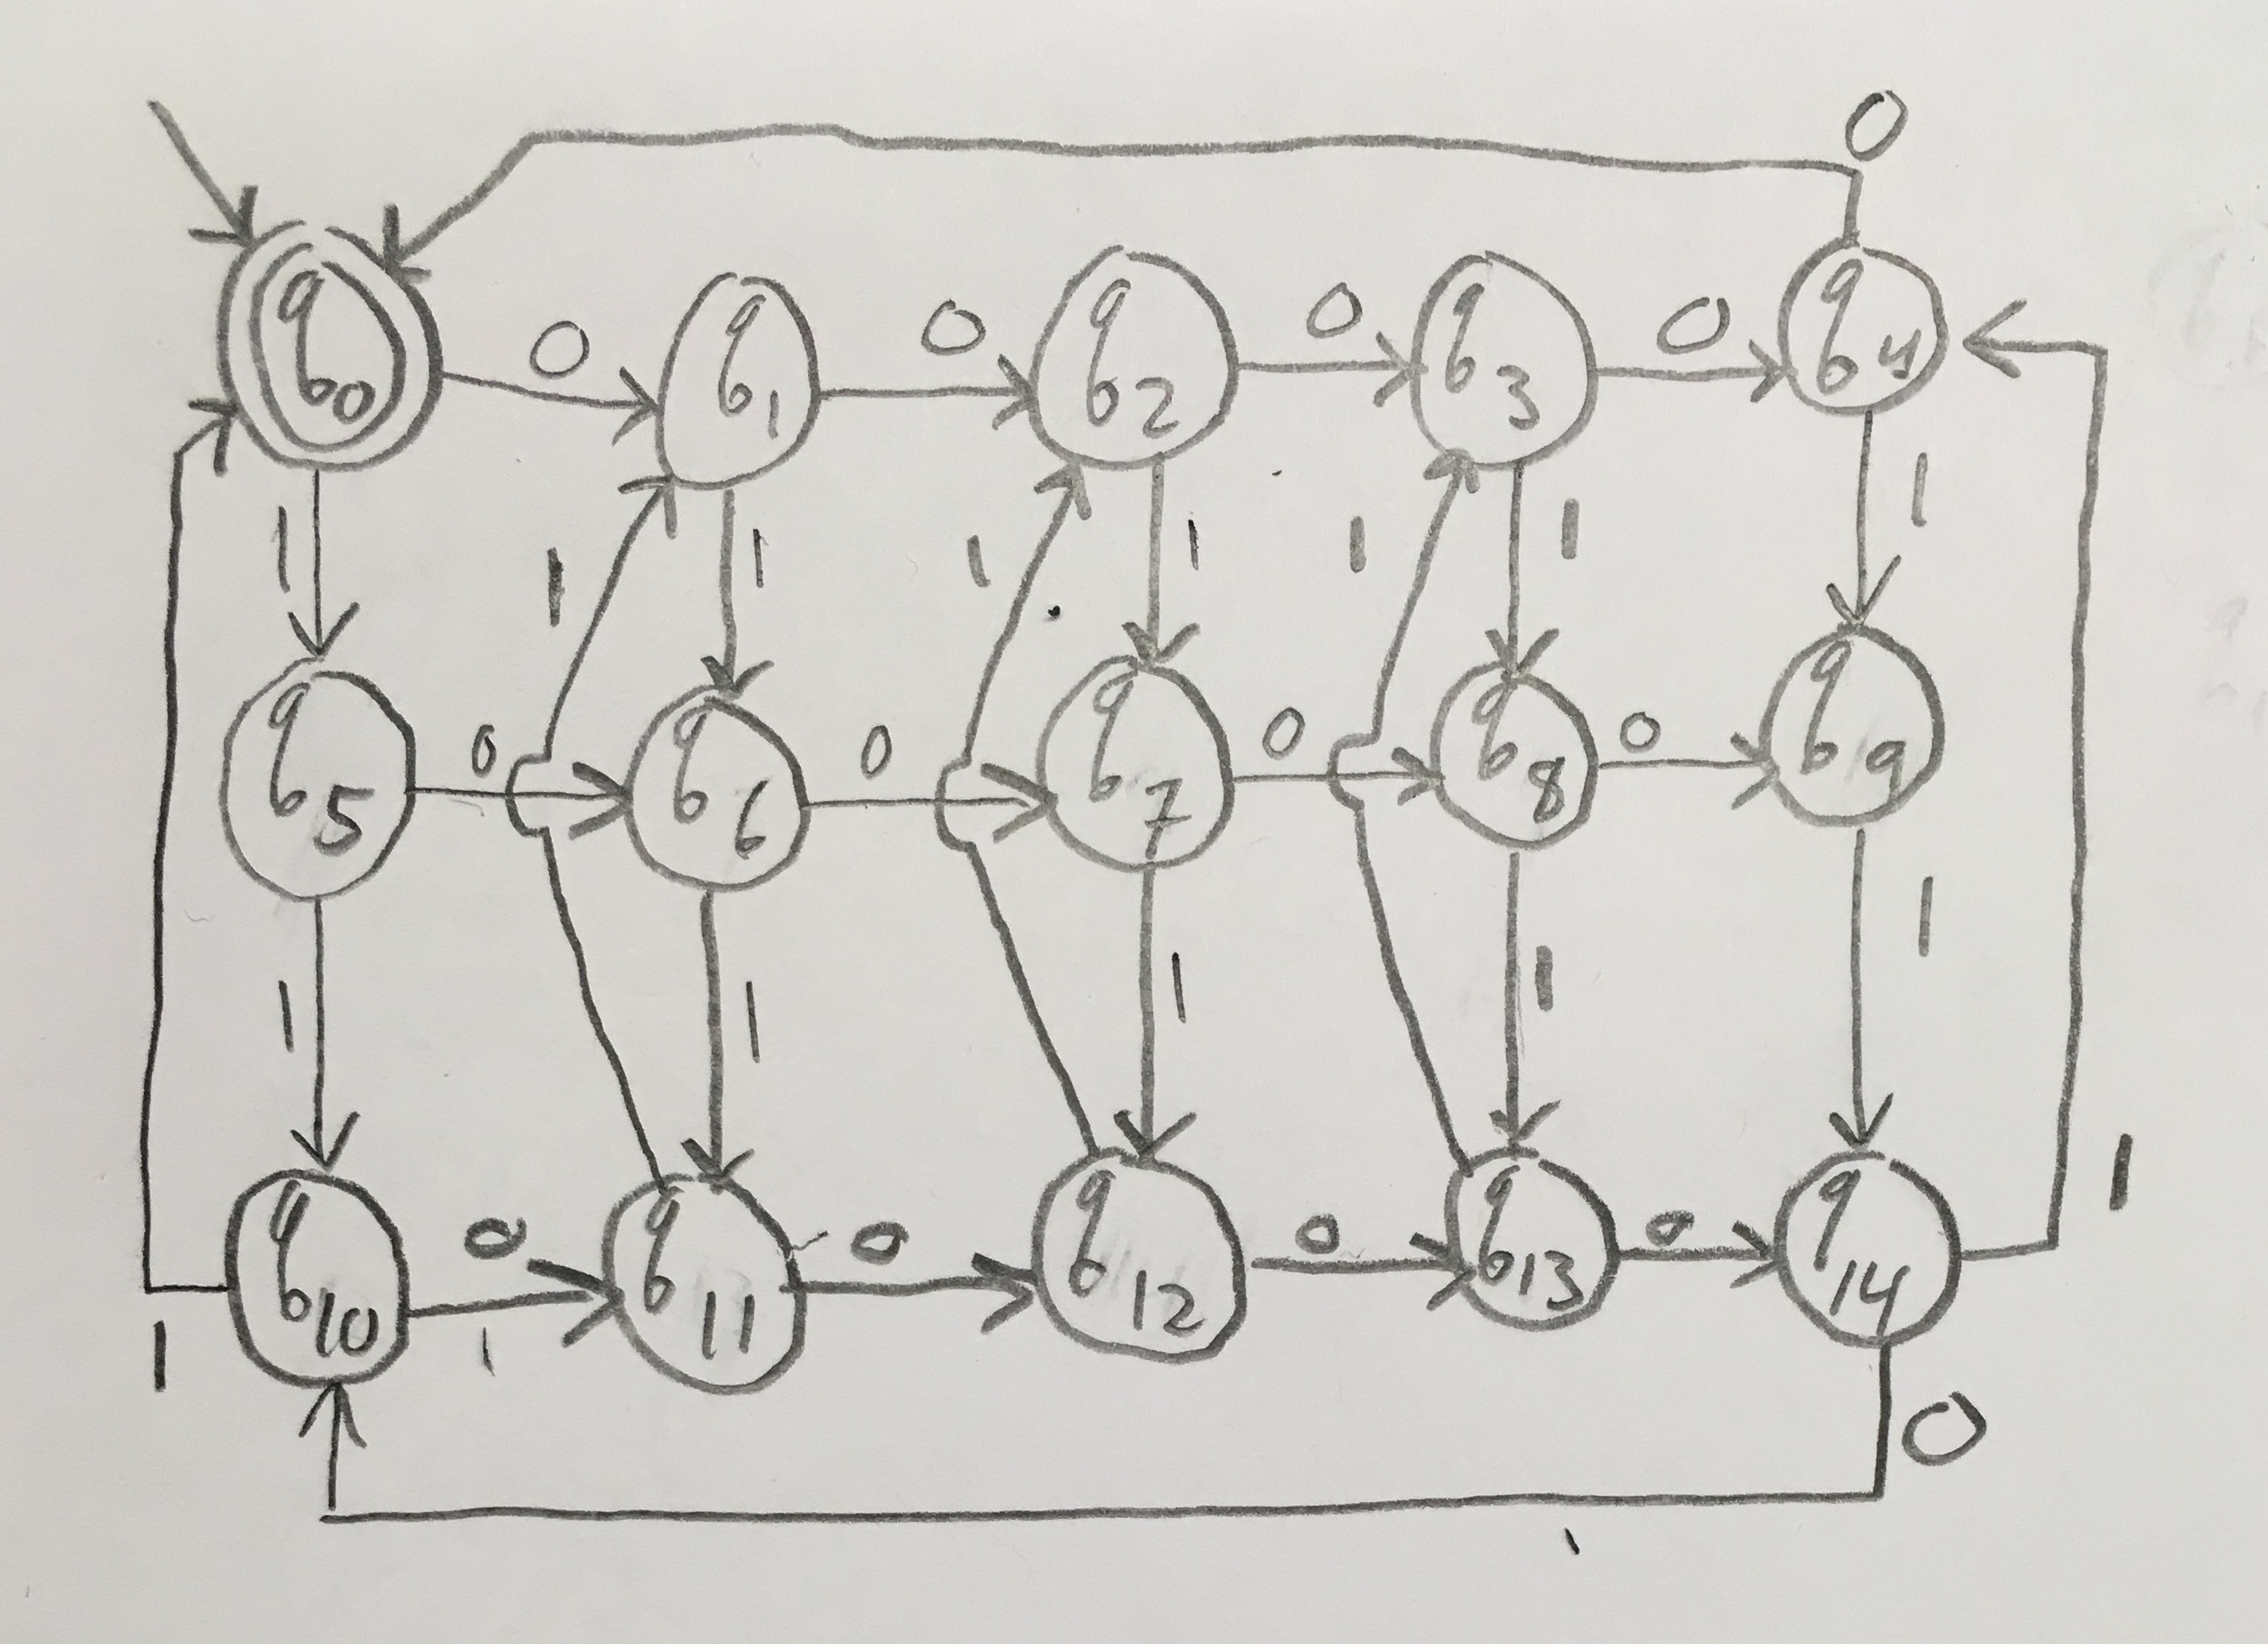 0
q0 0 q1 0 q2 0 q3 0 q4
1 1 1 1 1 1 1 1
q5 0 q6 0 q7 0 q8 0 q9
1 1 1 1 1
q10 0 q11 0 q12 0 q13 0 q14 1
1 0